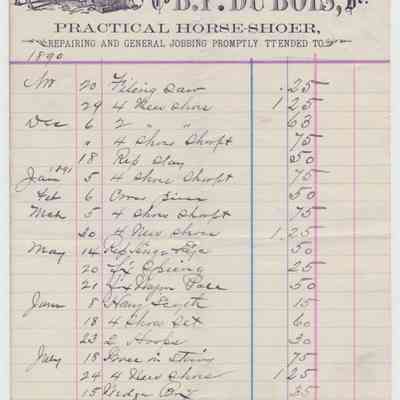 B.F. DUBOIS, Dr.
PRACTICAL HORSE-SHOER,
REPAIRING AND GENERAL JOBBING PROMPTLY TTENDED TO
1890
Nov 20 Fileing Saw .25
29 4 New Shoes 1 25
Dec 6 2 " " 63
" 4 Shoes Sharpt 75
18 Rep Slay 50
1891
Jan 5 4 Shoes Sharpt 75
Feb 6 Cross 50
Mch 5 4 Shoes Sharpt 75
20 4 New Shoes 1.25
May 14 Rep 50
20 Fix Spring 25
21 Fix Wagon 50
June 8 Hang Scyth 15
18 4 Shoes Set 60
23 2 Hooks 30
July 18 in 75
24 4 New Shoes 1 25
15 Wedge 35